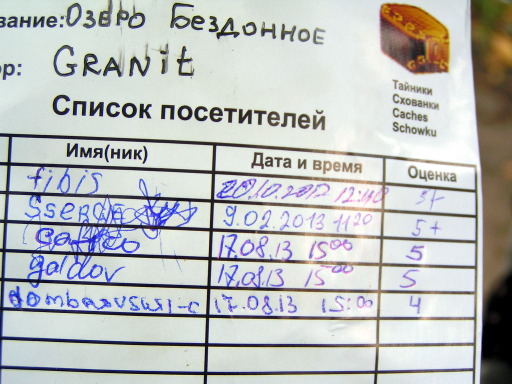 вание: Озеро Бездонное
ор: GRANit
Тайники
Схованки
Caches
Schowku
Список посетителей
Имя(ник) Дата и время Оценка
fibis 12:40 5+
9.02.2013 11 20 5+
17.08.13 15 00 5
galdov 17.08.13 15 00 5
17.08.13 15:00 4